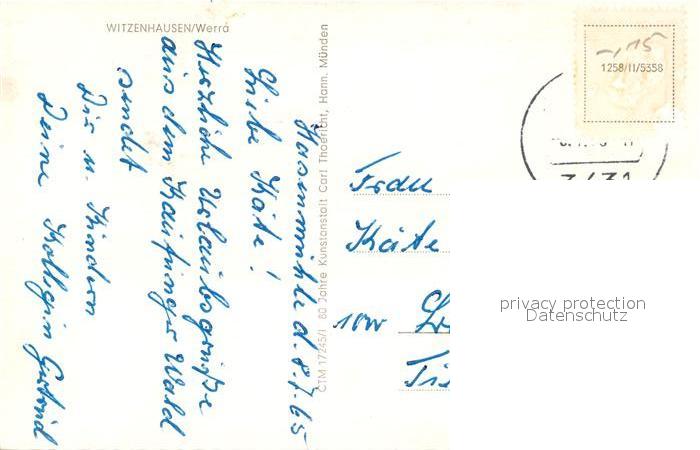 WITZENHAUSEN/Werra
Hasenmühle d. 8.7.65
Liebe Käte!
Herzliche Urlaubsgrüße
aus dem Kaufunger Wald
sendet
Dir u. Kindern
Deine Kollegin Gertrud
CTM 17245/1 80 Jahre Kunstanstalt Carl Thoericht, Hann. Münden
-,15
1258/11/5358
Frau
Käte
1000
privacy protection
Datenschutz